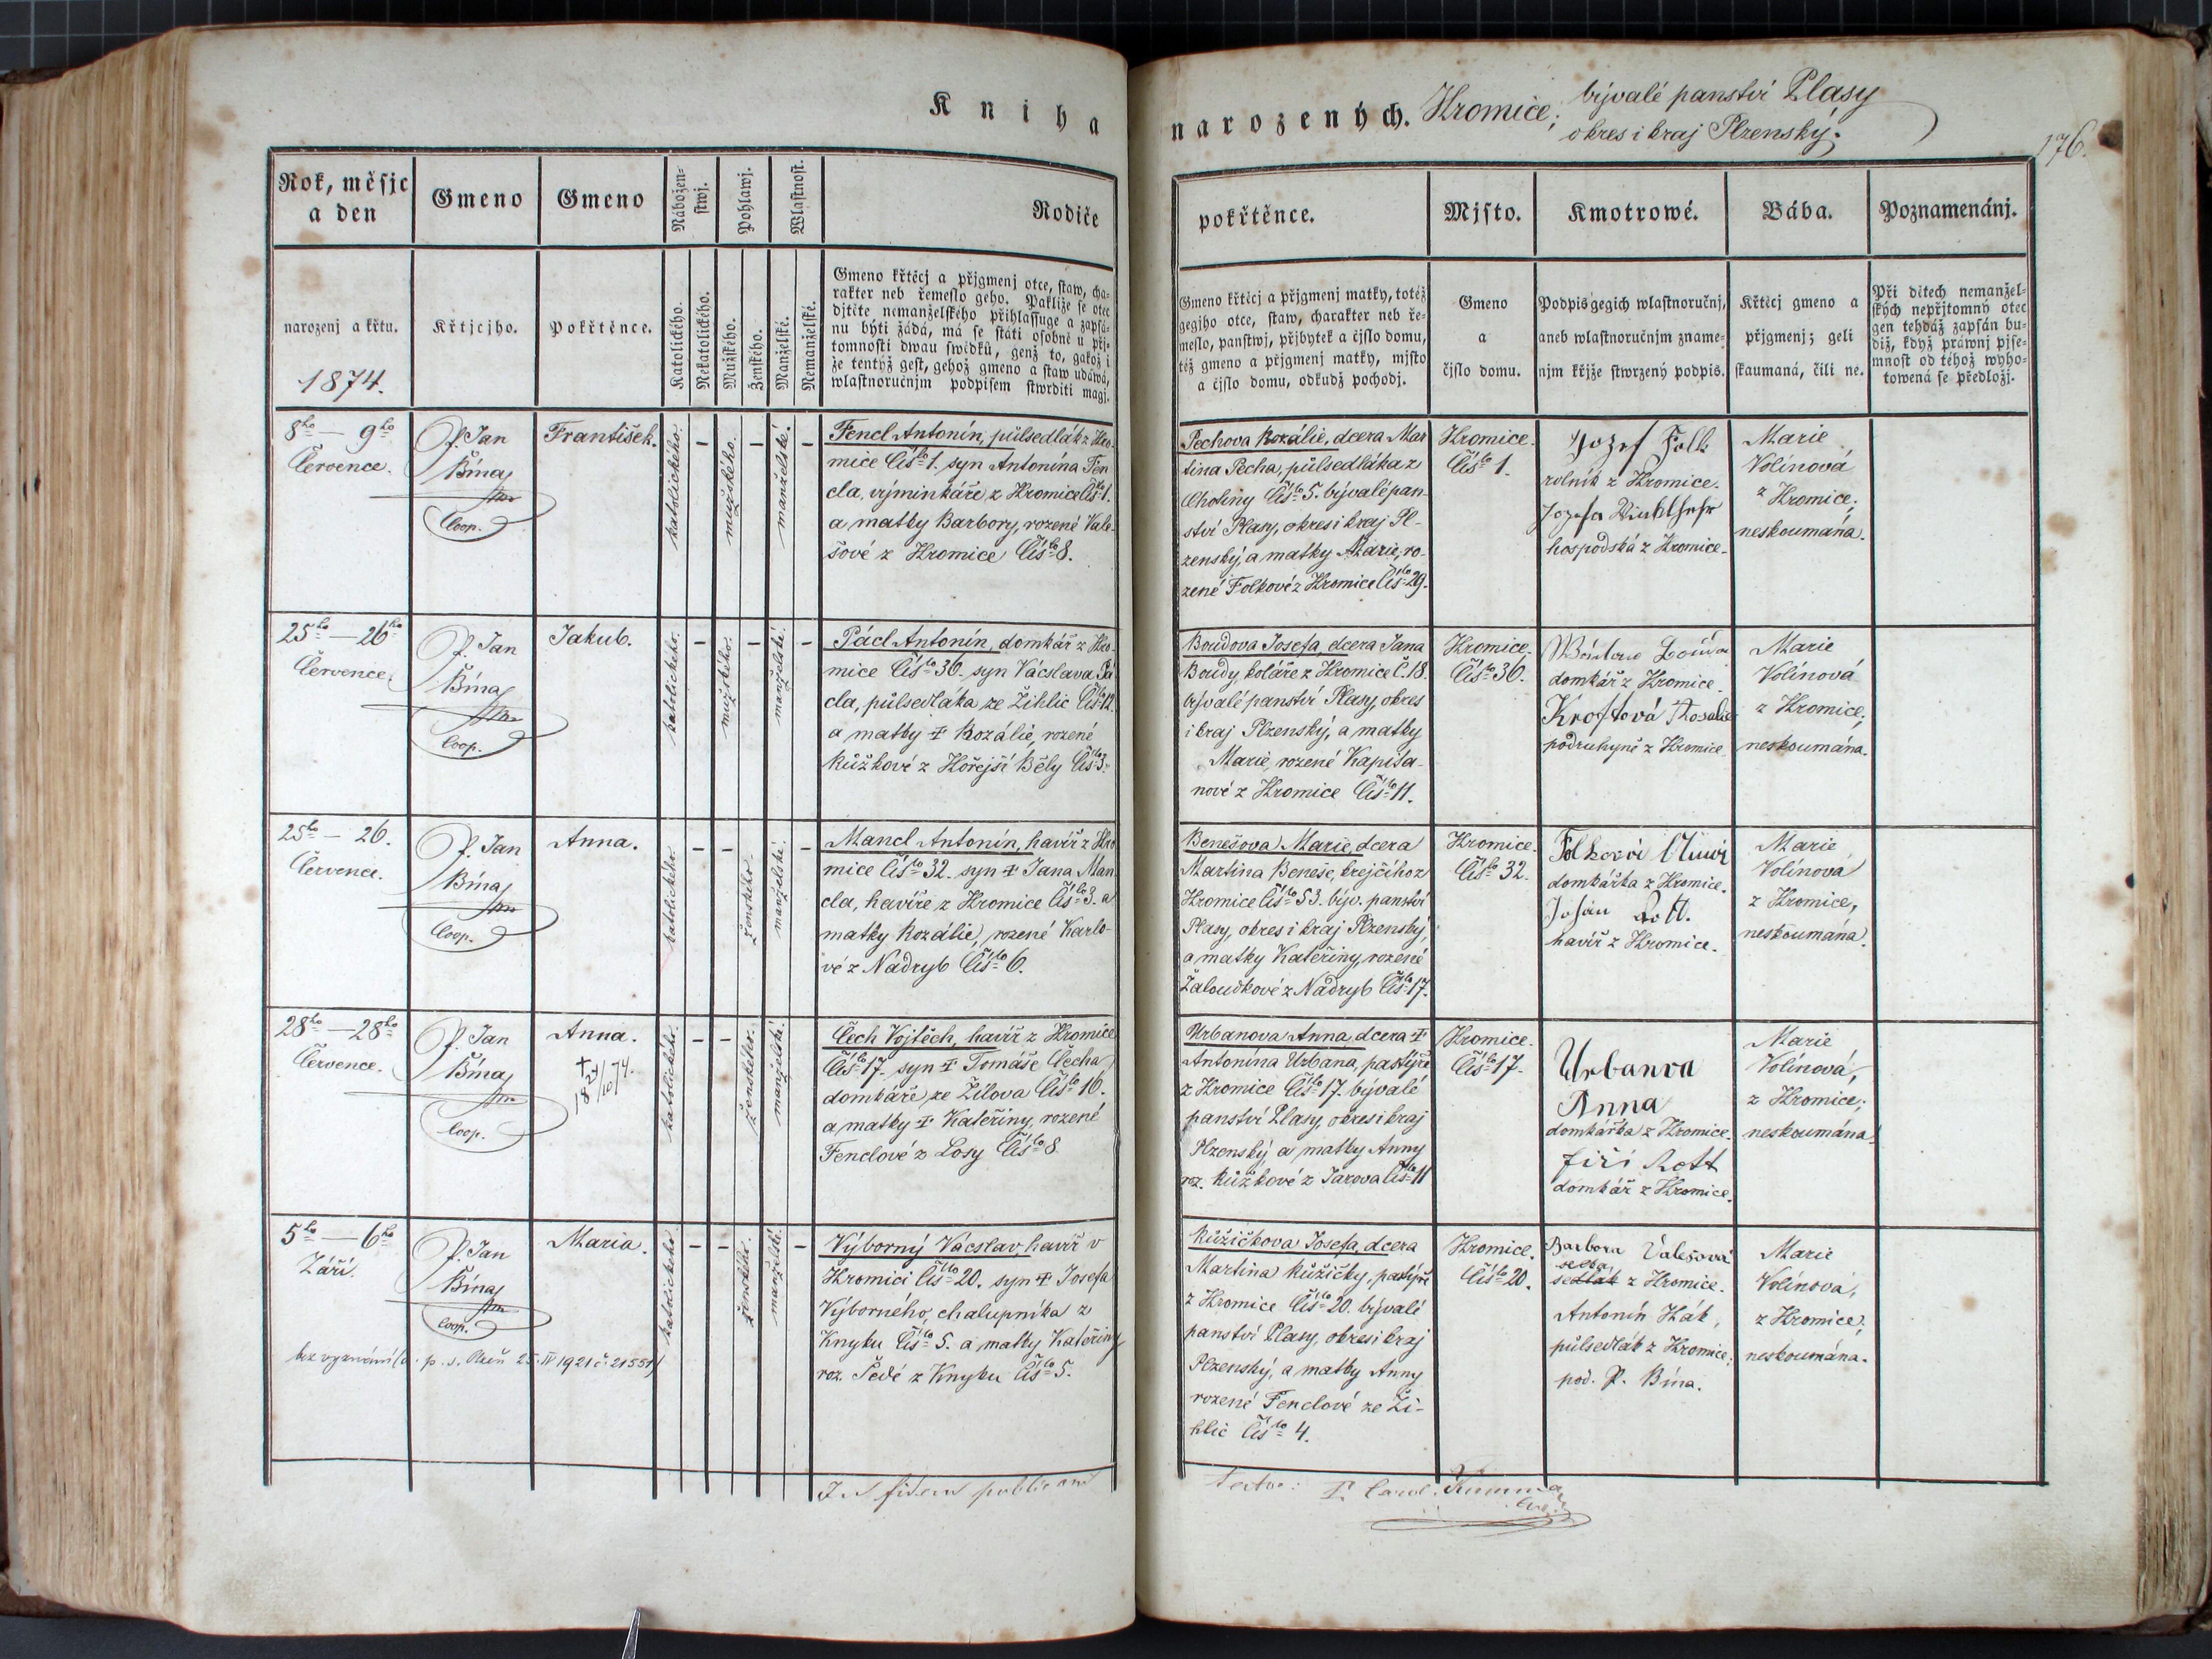 Kniha
narozených. Hromice; bývalé panství Plasy
okres i kraj Plzenský.
176.
Rok, měsjc
a den
Gmeno
Gmeno
Nábožen-
stwj.
Pohlawj.
Wlastnost.
Rodiče
narozenj a křtu.
1874.
Křtjcjho.
Pokřtěnce.
Katolického.
Nekatolického.
Mužského.
Ženského.
Manželské.
Nemanželské.
Gmeno křtěcj a přjgmenj otce, staw, cha-
rakter neb řemeslo geho. Pakliže se otec
djtěte nemanželského přihlassuge a zapsá-
nu býti žádá, má se státi osobně u přj-
tomnosti dwau swědků, genž to, gakož i
že tentýž gest, gehož gmeno a staw udáwá,
wlastnoručnjm podpisem stwrditi magj.
8ho — 9ho
Července.
P. Jan
Bína
Coop.
František.
katolického.
–
mužského.
–
manželské.
–
Fencl Antonín, půlsedlák z Hro-
mice Čís. 1. syn Antonína Fen
cla, výminkáře z Hromice Čís. 1.
a matky Barbory, rozené Vale-
šové z Hromice Čís. 8.
25ho — 26ho
Července.
P. Jan
Bína
Coop.
Jakub.
katolického.
–
mužského.
–
manželské.
–
Pácl Antonín, domkář z Hro-
mice Čís. 36. syn Vácslava Pá
cla, půlsedláka ze Žihlic Čís. 12.
a matky ‡ Rozálie, rozené
Růžkové z Hořejší Běly Čís. 3.
25ho — 26.
Července.
P. Jan
Bína
Coop.
Anna.
katolického.
–
–
ženského.
manželské.
–
Mancl Antonín, havíř z Hro
mice Čís. 32. syn ‡ Jana Man
cla, havíře z Hromice Čís. 3. a
matky Rozálie, rozené Karlo-
vé z Nadryb Čís. 6.
28ho — 28ho
Července.
P. Jan
Bína
Coop.
Anna.
+
18 24/10 74.
katolického.
–
–
ženského.
manželské.
Čech Vojtěch, havíř z Hromice
Čís. 17. syn ‡ Tomáše Čecha
domkáře, ze Žilova Čís. 16.
a matky ‡ Kateřiny, rozené
Fenclové z Losy Čís. 8
5ho — 6ho
Září.
P. Jan
Bína
Coop.
Maria.
katolického
–
–
ženského.
manželské.
–
Výborný Vácslav havíř v
Hromici Čís. 20. syn ‡ Josefa
Výborného, chalupníka z
Knyku Čís. 5. a matky Kateřiny
roz. Šedé z Knyku Čís. 5.
bez vyznání (o. p. s. Plzeň 25. IV 1921 č. 21551)
In fidem publicam
pokřtěnce.
Mjsto.
Kmotrowé.
Bába.
Poznamenánj.
Gmeno křtěcj a přjgmenj matky, totéž
gegjho otce, staw, charakter neb ře-
meslo, panstwj, přjbytek a čjslo domu,
též gmeno a přjgmenj matky, mjsto
a čjslo domu, odkudž pochodj.
Gmeno
a
čjslo domu.
Podpis gegich wlastnoručnj,
aneb wlastnoručnjm zname-
njm křjže stwrzený podpis.
Křtěcj gmeno a
přjgmenj; geli
skaumaná, čili ne.
Při dětech nemanžel-
ských nepřjtomný otec
gen tehdáž zapsán bu-
diž, když práwnj pjse-
mnost od téhož wyho-
towená se předložj.
Pechova Rozálie, dcera Mar
tina Pecha, půlsedláka z
Chotiny Čís. 5. bývalé pan-
ství Plasy, okres i kraj Pl-
zenský, a matky Marie, ro-
zené Folkové z Hromice Čís. 29.
Hromice.
Čís. 1.
Jozef Folk
rolník z Hromice.
Jozefa
hospodská z Hromice.
Marie
Volínová
z Hromice;
neskoumána.
Boudova Josefa, dcera Jana
Boudy, koláře z Hromice č. 18.
bývalé panství Plasy, okres
i kraj Plzenský, a matky
Marie, rozené Kapitá-
nové z Hromice Čís. 11.
Hromice.
Čís. 36.
domkář z Hromice.
Kroftová Rosalie
podruhyně z Hromice
Marie
Volínová
z Hromice;
neskoumána.
Benešova Marie, dcera
Martina Beneše, krejčího z
Hromice Čís. 53. býv. panství
Plasy, okres i kraj Plzenský,
a matky Kateřiny, rozené
Žaloudkové z Nadryb Čís. 17.
Hromice.
Čís. 32.
domkářka z Hromice.
Johan Rott.
havíř z Hromice.
Marie
Volínová
z Hromice,
neskoumána.
Urbanova Anna, dcera ‡
Antonína Urbana, pastýře
z Hromice Čís. 17. bývalé
panství Plasy, okres i kraj
Plzenský a matky Anny
roz. Růžkové z Jarova Čís. 11
Hromice.
Čís. 17.
Urbanva
Anna
domkářka z Hromice.
Jiří Rott
domkář z Hromice.
Marie
Volínová,
z Hromice;
neskoumána.
Růžičkova Josefa, dcera
Martina Růžičky, pastýře
z Hromice Čís. 20. bývalé
panství Plasy, okres i kraj
Plzenský, a matky Anny
rozené Fenclové ze Ži-
hlic Čís. 4.
Hromice.
Čís. 20.
Barbora Valešová
selka
sedlák z Hromice.
Antonín Hák,
půlsedlák z Hromice;
pod. P. Bína.
Marie
Volínová,
z Hromice;
neskoumána.